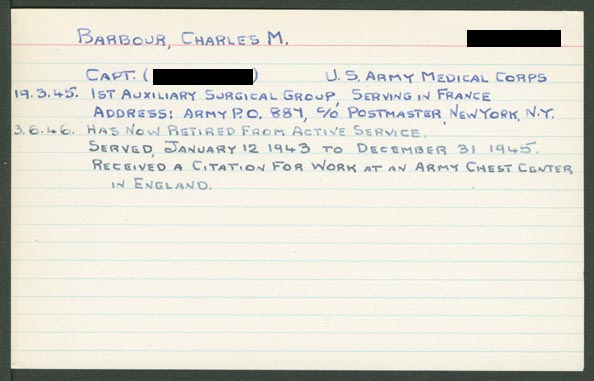 BARBOUR, CHARLES M.
CAPT. ( ) U.S. ARMY MEDICAL CORPS
19.3.45. 1ST AUXILIARY SURGICAL GROUP, SERVING IN FRANCE
ADDRESS: ARMY P.O. 887, C/O POSTMASTER, NEW YORK, N.Y.
3.6.46. HAS NOW RETIRED FROM ACTIVE SERVICE.
SERVED, JANUARY 12 1943 TO DECEMBER 31 1945.
RECEIVED A CITATION FOR WORK AT AN ARMY CHEST CENTER
IN ENGLAND.